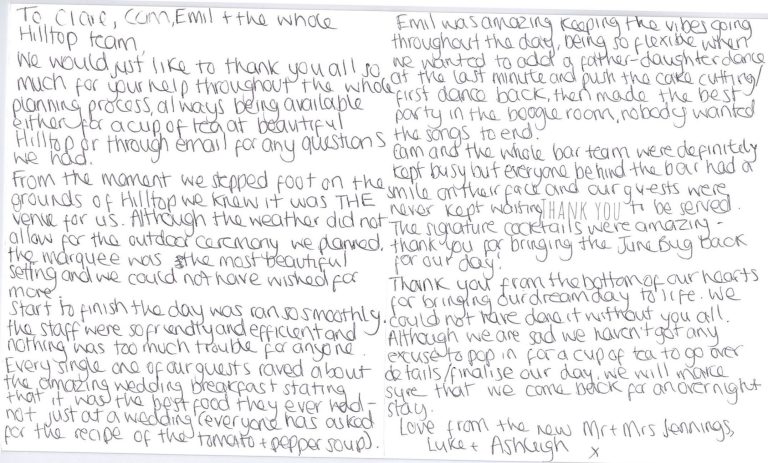 To Claire, Cam, Emil + the whole
Hilltop team,
We would just like to thank you all so
much for your help throughout the whole
planning process, always being available
either for a cup of tea at beautiful
Hilltop or through email for any questions
we had.
From the moment we stepped foot on the
grounds of Hilltop we knew it was THE
venue for us. Although the weather did not
allow for the outdoor ceremony we planned,
the marquee was the most beautiful
setting and we could not have wished for
more.
Start to finish the day was ran so smoothly.
the staff were so friendly and efficient and
nothing was too much trouble for anyone.
Every single one of our guests raved about
the amazing wedding breakfast stating
that it was the best food they ever had -
not just at a wedding (everyone has asked
for the recipe of the tomato + pepper soup).
Emil was amazing keeping the vibes going
throughout the day, being so flexible when
we wanted to add a father-daughter dance
at the last minute and push the cake cutting/
first dance back, then made the best
party in the boogie room, nobody wanted
the songs to end.
Cam and the whole bar team were definitely
kept busy but everyone behind the bar had a
smile on their face and our guests were
never kept waiting THANK YOU to be served.
The signature cocktails were amazing -
thank you for bringing the June Bug back
for our day!
Thank you from the bottom of our hearts
for bringing our dream day to life. We
could not have done it without you all.
Although we are sad we haven't got any
excuse to pop in for a cup of tea to go over
details/finalise our day, we will make
sure that we come back for an overnight
stay.
Love from the new Mr + Mrs Jennings,
Luke + Ashleigh x